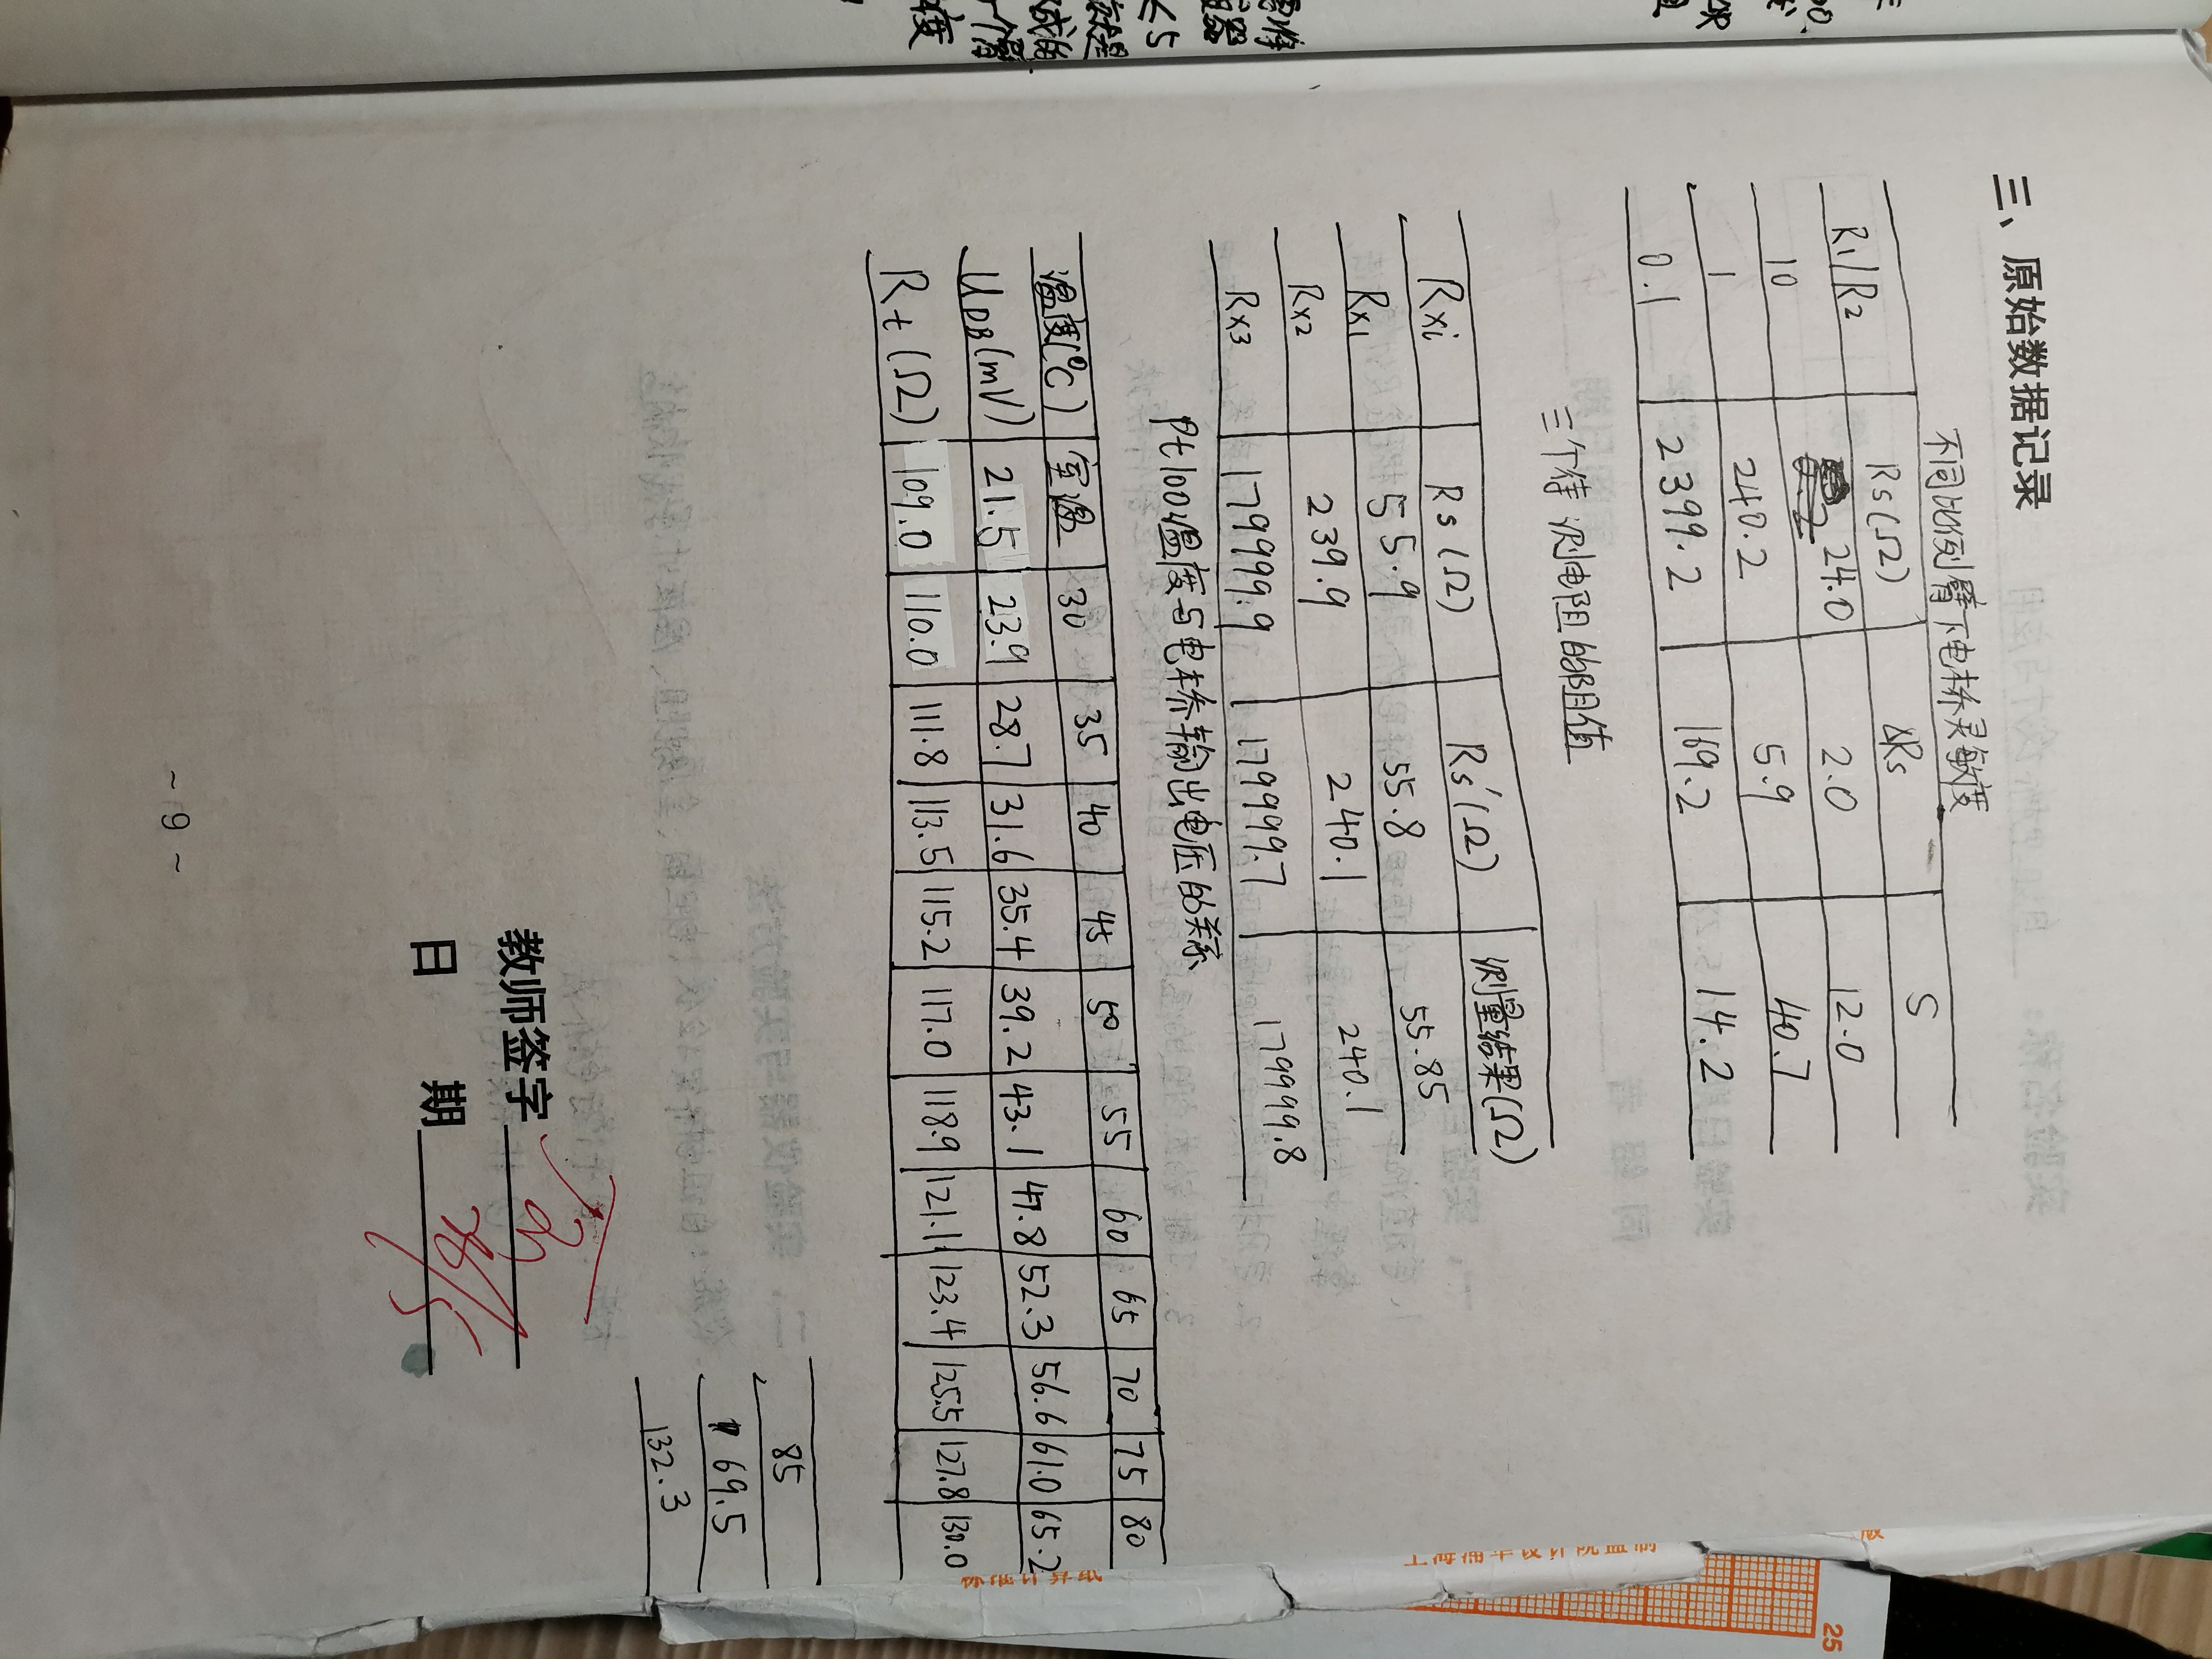 三、原始数据记录
不同比例臂下电桥灵敏度
R1/R2 Rs(Ω) ΔRs S
10 24.0 2.0 12.0
1 240.2 5.9 40.7
0.1 2399.2 169.2 14.2
三个待测电阻的阻值
Rxi Rs(Ω) Rs'(Ω) 测量结果(Ω)
Rx1 55.9 55.8 55.85
Rx2 239.9 240.1 240.1
Rx3 179999.9 179999.7 179999.8
Pt100温度与电桥输出电压的关系
温度(℃) 室温 30 35 40 45 50 55 60 65 70 75 80
UDB(mV) 21.5 23.9 28.7 31.6 35.4 39.2 43.1 47.8 52.3 56.6 61.0 65.2
Rt(Ω) 109.0 110.0 111.8 113.5 115.2 117.0 118.9 121.1 123.4 125.5 127.8 130.0
85
69.5
132.3
教师签字
日 期
~ 9 ~
标准计算纸
25